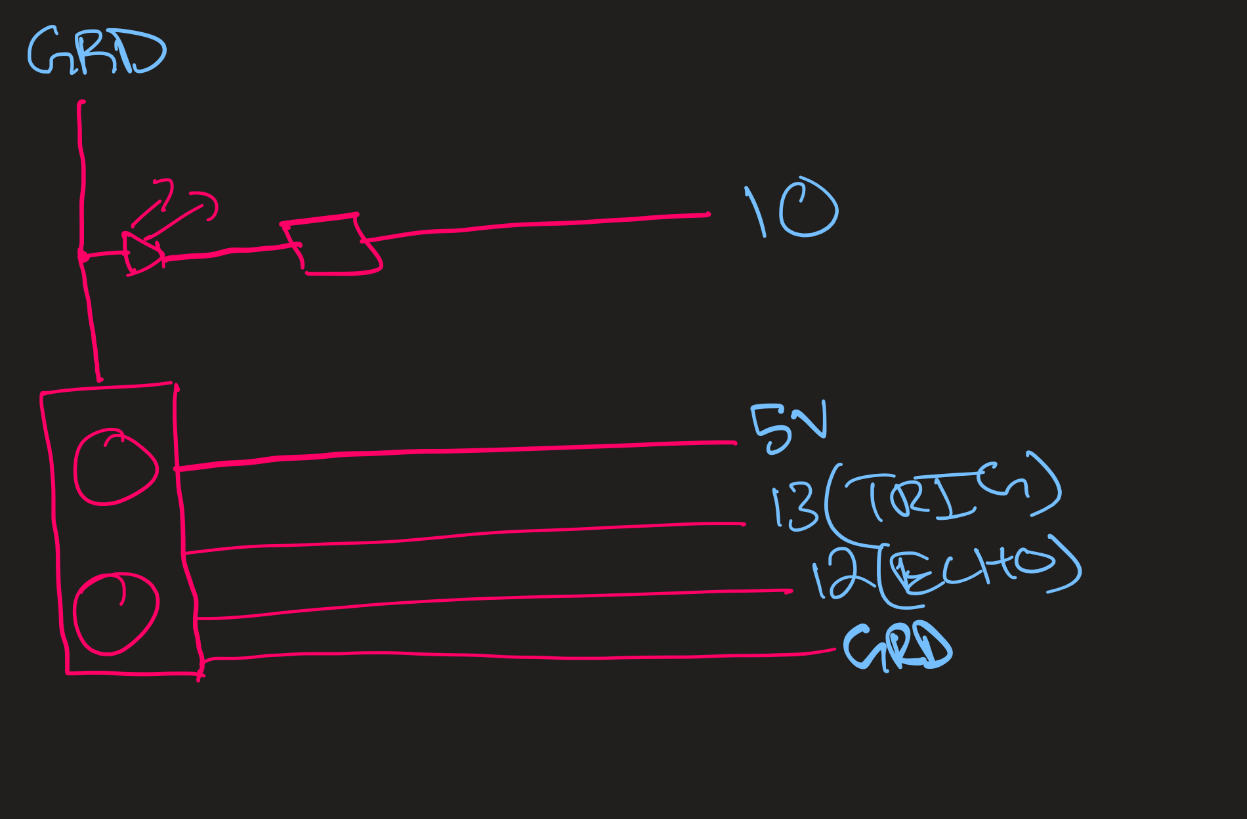 GRD
10
5V
13 (TRIG)
12 (ECHO)
GRD